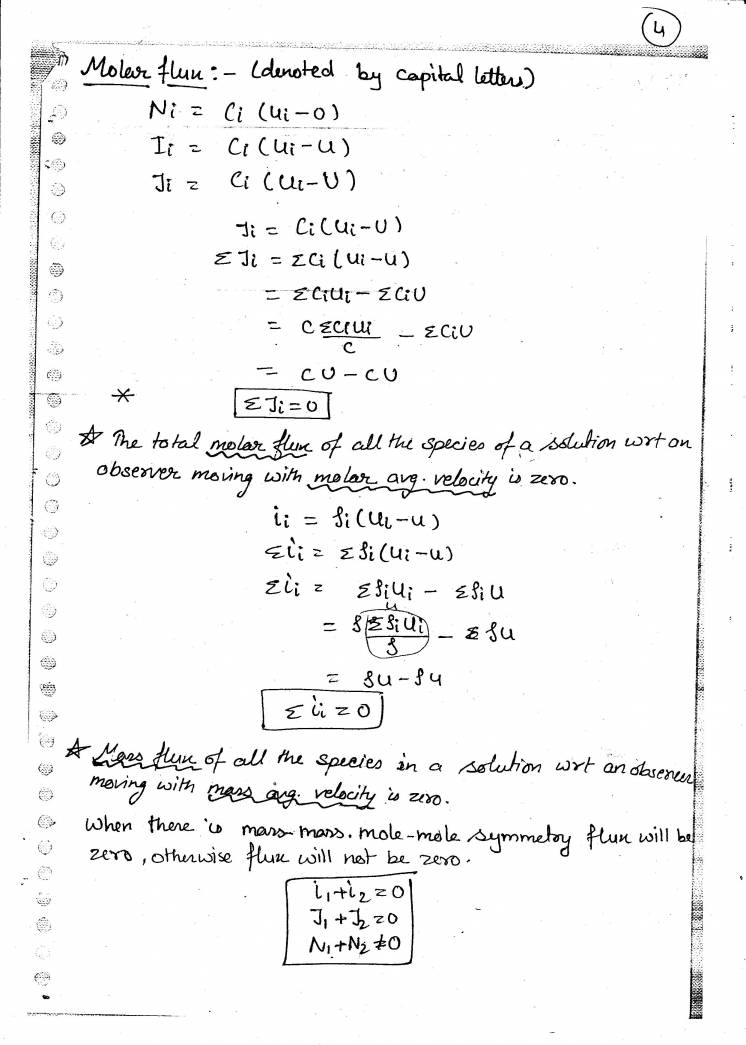 4
Molar flux :- (denoted by capital letters)
Ni = Ci (ui-0)
Ii = Ci (ui-u)
Ji = Ci (ui-U)
Ji = Ci (ui-U)
Σ Ji = ΣCi (ui-u)
= ΣCiui - ΣCiU
= C ΣCiui/C - ΣCiU
= CU - CU
* ΣJi = 0
☆ The total molar flux of all the species of a solution wrt an
observer moving with molar avg. velocity is zero.
ii = ρi(ui-u)
Σii = Σρi(ui-u)
Σii = Σρiui - Σρiu
u
= ρ Σρiui/ρ - Σρu
= ρu - ρu
Σii = 0
☆ Mass flux of all the species in a solution wrt an observer
moving with mass avg. velocity is zero.
When there is mass-mass. mole-mole symmetry flux will be
zero, otherwise flux will not be zero.
i₁+i₂=0
J₁+J₂=0
N₁+N₂≠0